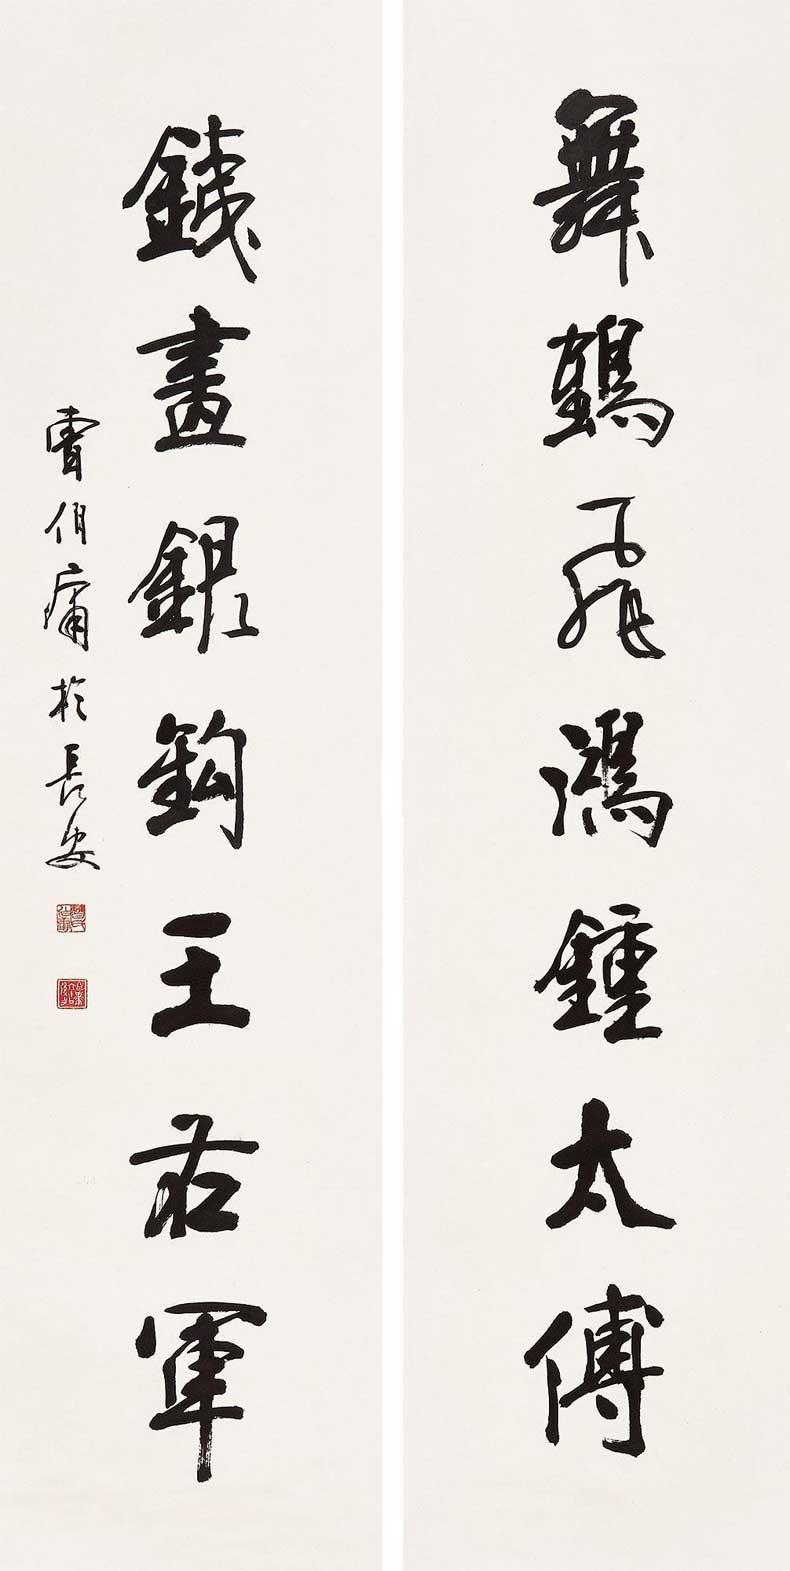 舞鶴飛鴻鍾太傅
銕畫銀鈎王右軍
曹伯庸於長安